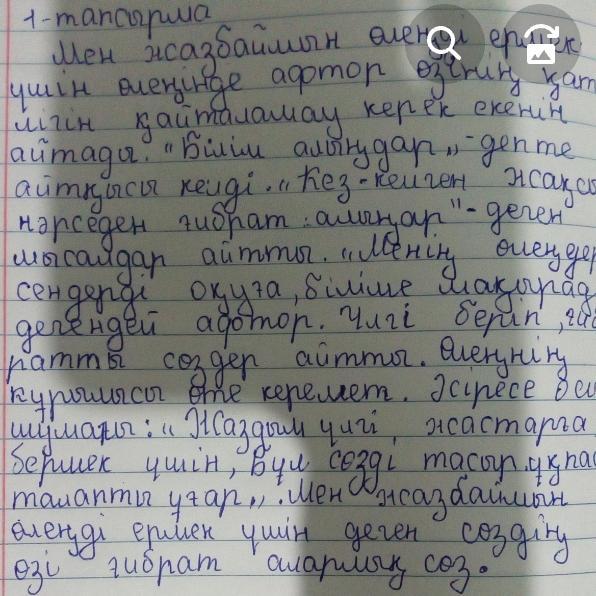 1-тапсырма
Мен жазбаймын өлеңді ермек
үшін өлеңінде афтор өзінің қат
лігін қайталамау керек екенін
айтады. "Білім алыңдар„-депте
айтқысы келді. "Кез-келген жақсы
нәрседен ғибрат алыңар"-деген
мысалдар айтты. "Менің өлеңдер
сендерді оқуға, білімге шақырад
дегендей афтор. Үлгі беріп, ғиб
ратты сөздер айтты. Өлеңнің
құрылысы өте керемет. Әсіресе осы
шумағы: "Жаздым үлгі, жастарға
бермек үшін, Бұл сөзді тасыр ұқпас
талапты ұғар„. Мен жазбаймын
өлеңді ермек үшін деген сөздің
өзі ғибрат аларлық сөз.